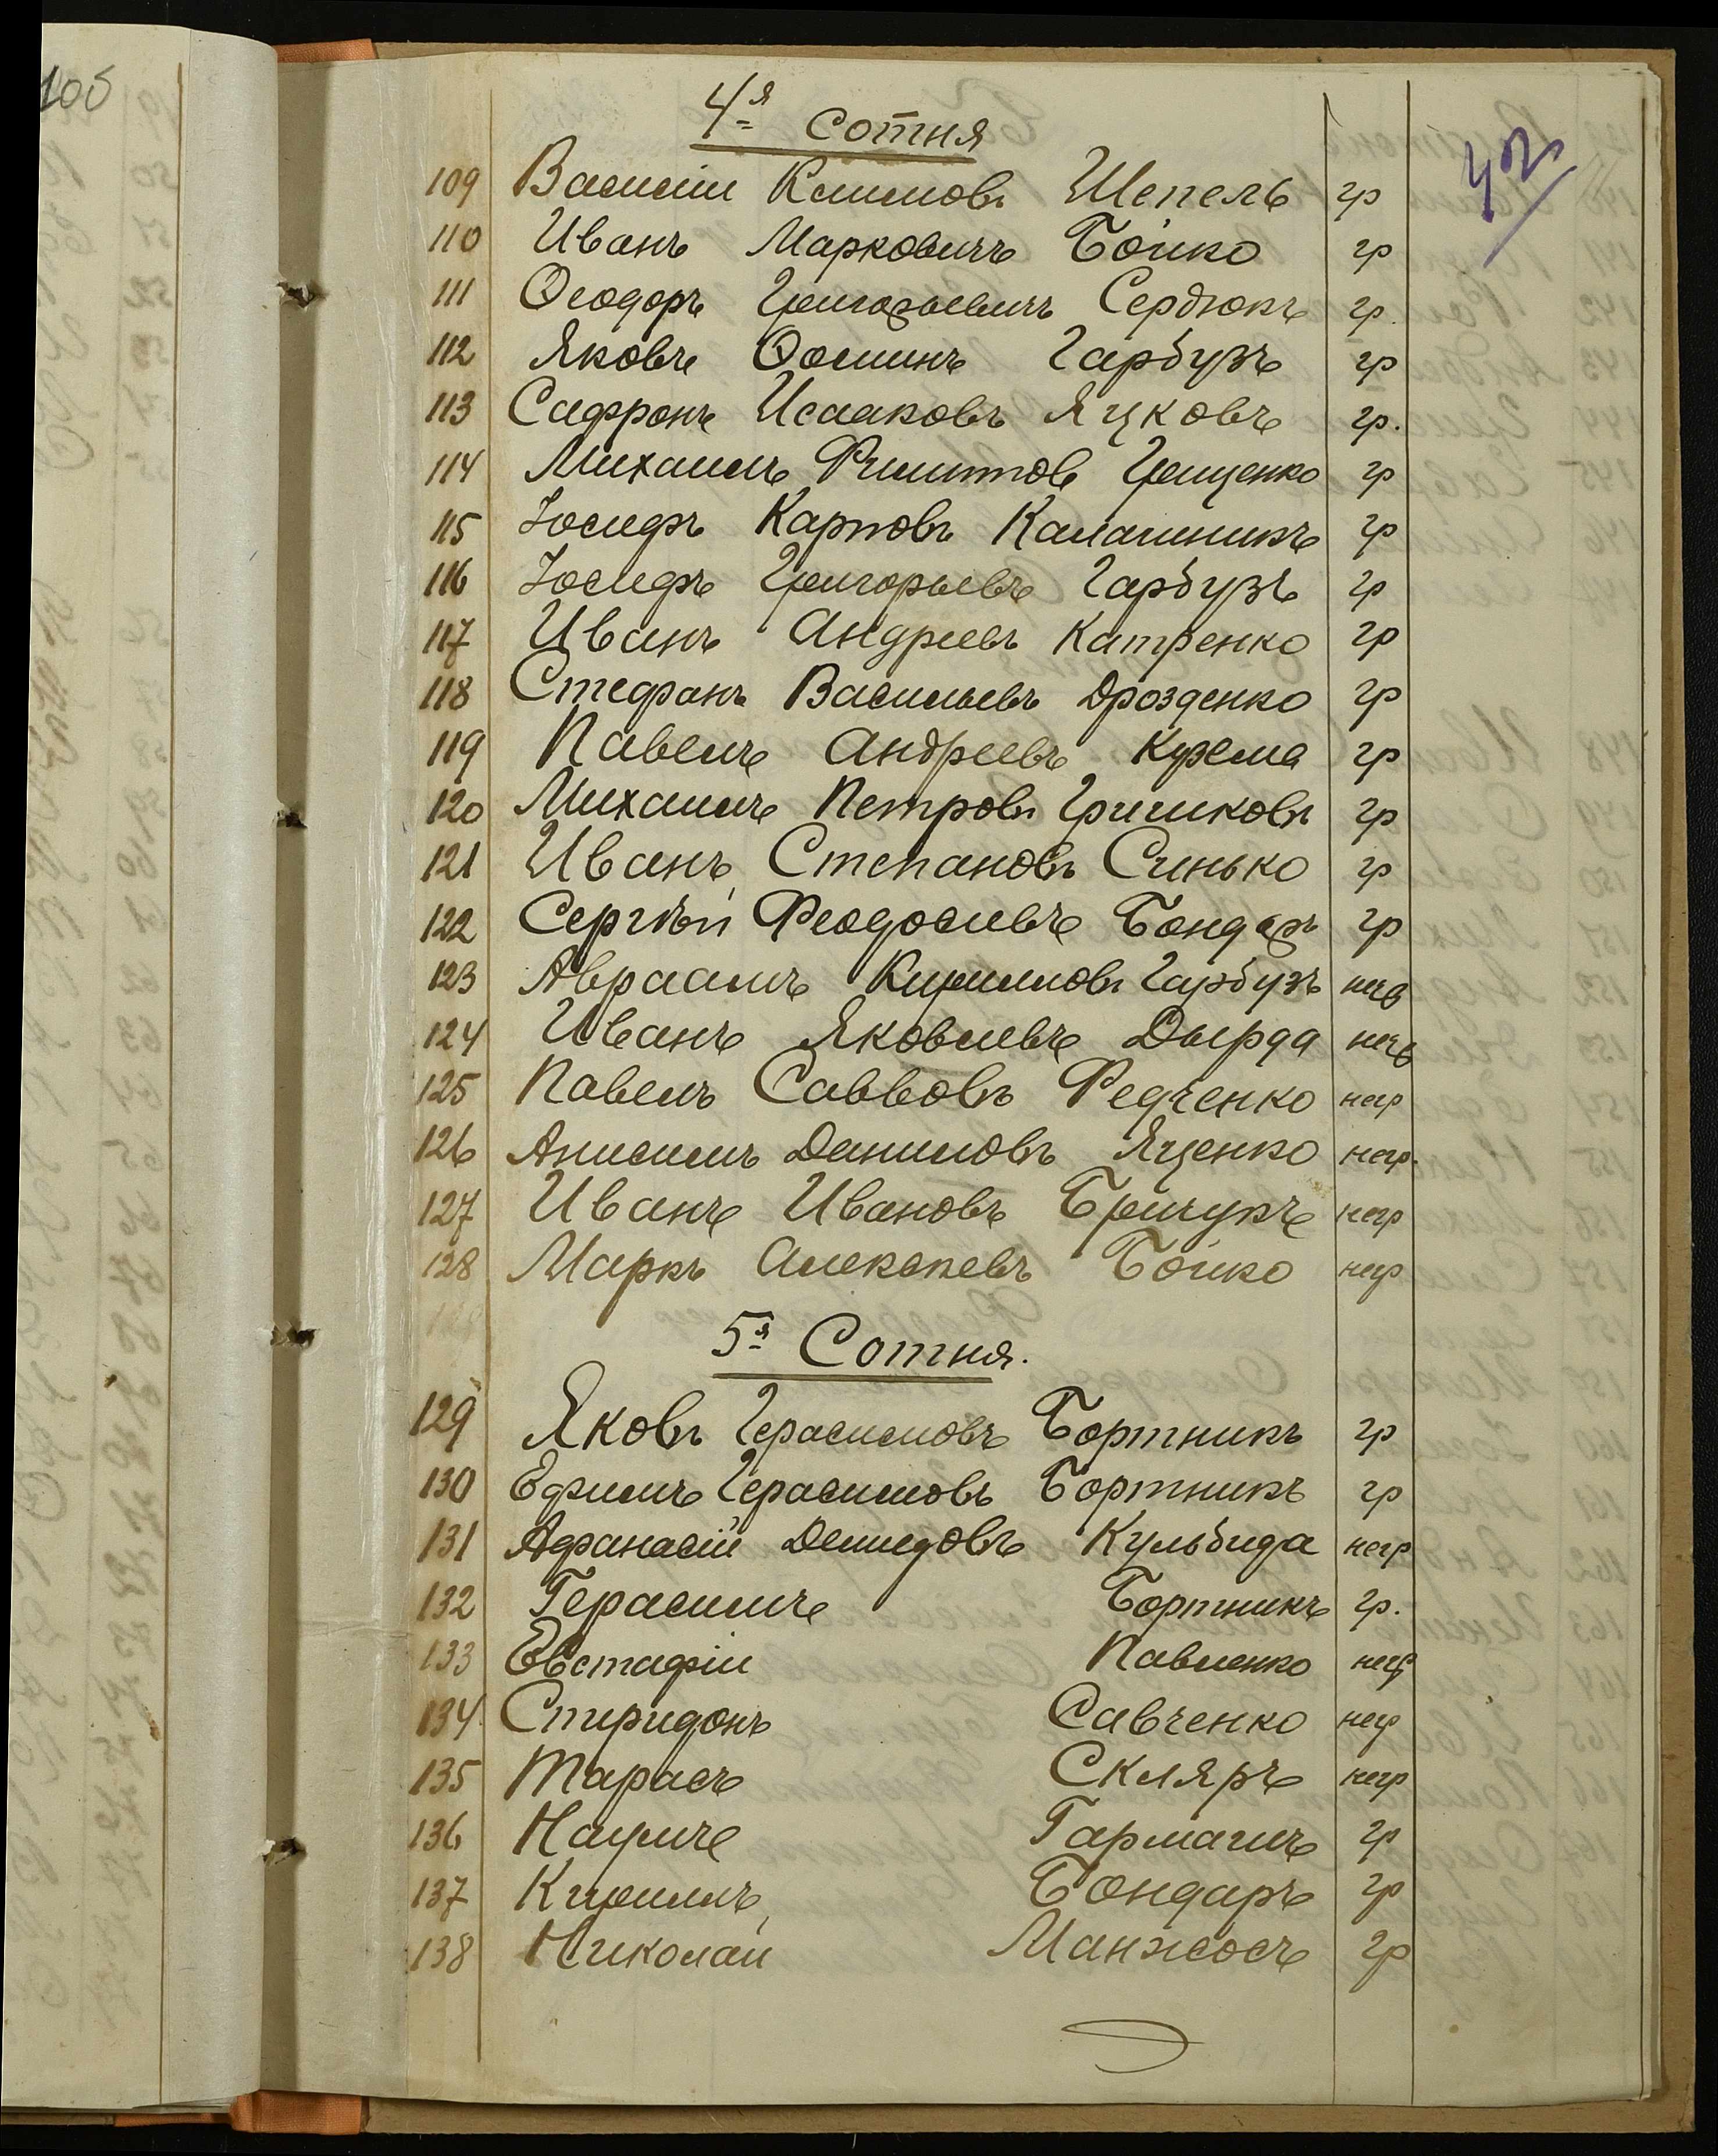 105
42
4я Сотня
109 Василій Климовъ Шепель гр
110 Иванъ Марковичъ Бойко гр
111 Ѳеодоръ Григорьевичъ Сердюкъ гр.
112 Яковъ Ѳоминъ Гарбузъ гр
113 Сафронъ Исааковъ Яцковъ гр.
114 Михаилъ Филиппов Грищенко гр
115 Іосифъ Карповъ Калашникъ гр
116 Іосифъ Григорьевъ Гарбузъ гр
117 Иванъ Андреевъ Катренко гр
118 Стефанъ Васильевъ Дрозденко гр
119 Павелъ Андреевъ Кузема гр
120 Михаилъ Петровъ Гришковъ гр
121 Иванъ Степановъ Синько гр
122 Сергѣй Феодосиевъ Бондарь гр
123 Авраамъ Кирилловъ Гарбузъ негр
124 Иванъ Яковлевъ Дырда негр
125 Павелъ Савбовъ Федченко негр
126 Анисимъ Даниловъ Яценко негр.
127 Иванъ Ивановъ Бричукъ негр
128 Маркъ Алексеевъ Бойко негр
5я Сотня.
129 Яковъ Герасимовъ Бортникъ гр
130 Ефимъ Герасимовъ Бортникъ гр
131 Афанасій Демидовъ Кульбида негр
132 Герасимъ Бортникъ гр.
133 Евстафій Павленко негр
134 Спиридонъ Савченко негр
135 Тарасъ Скляръ негр
136 Наумъ Гармашъ гр
137 Кириллъ Бондаръ гр
138 Николай Манжосъ гр